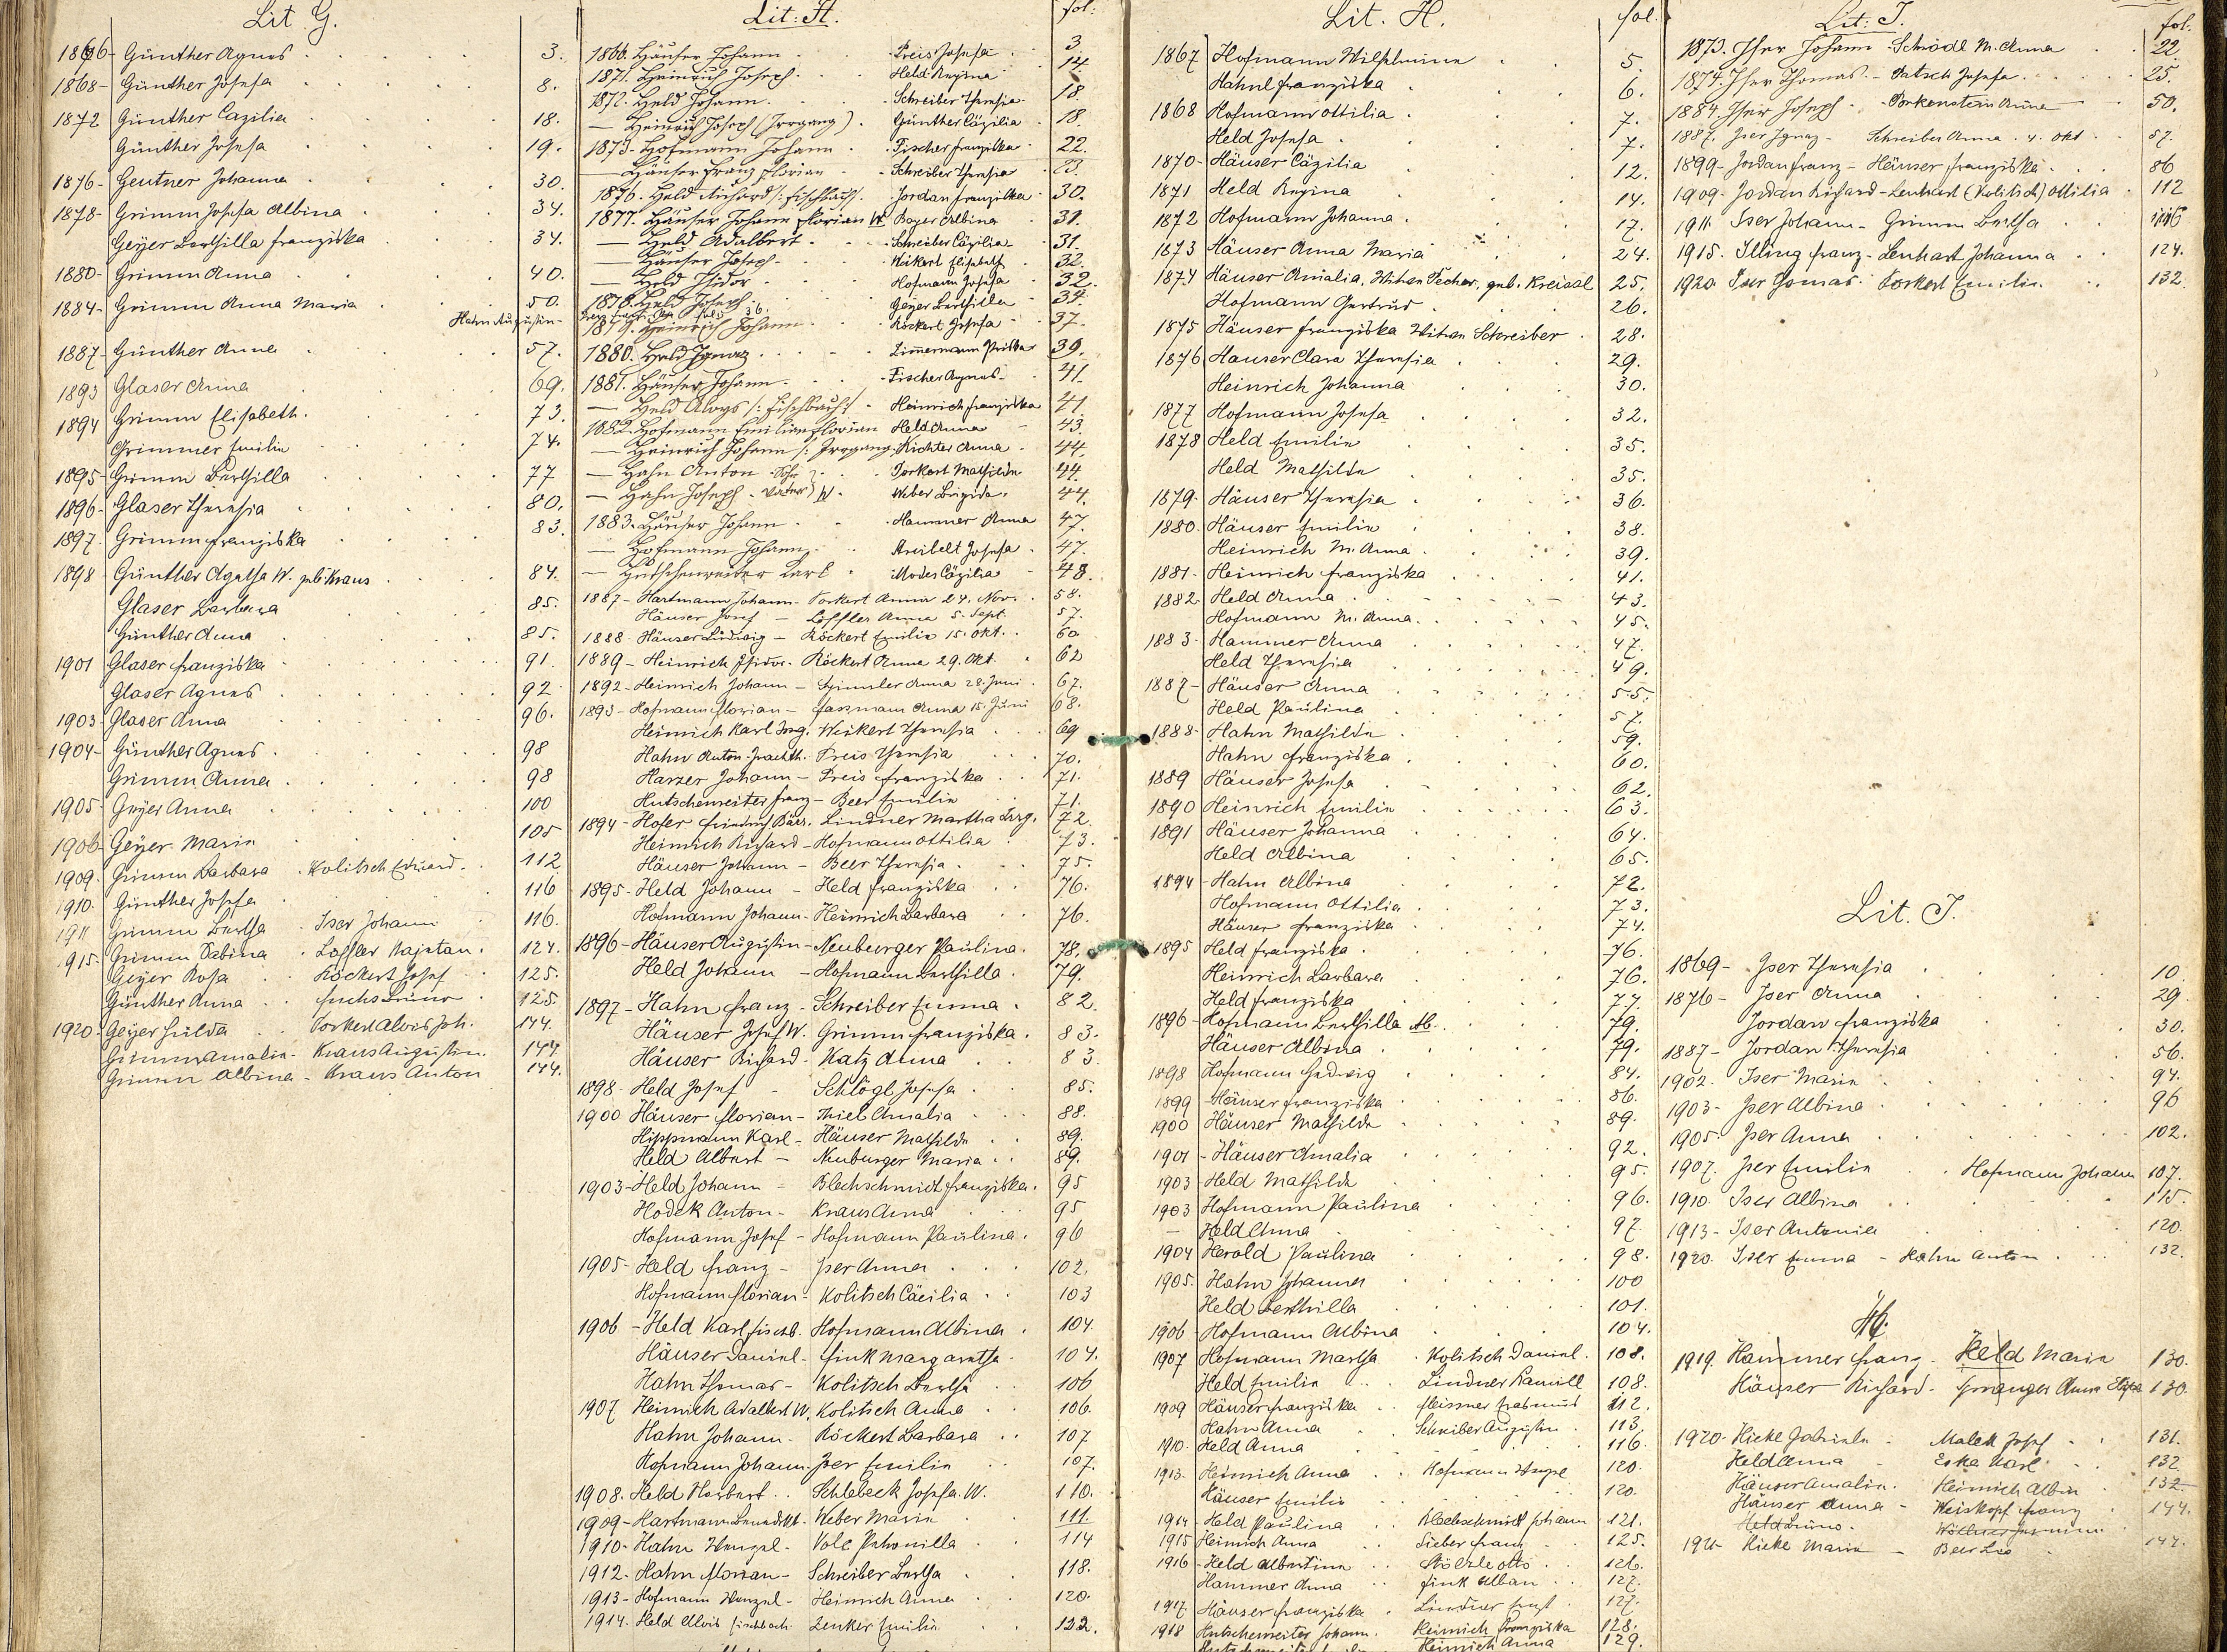 Lit G.
1866 - Günther Agnes 3.
1868 - Günther Josefa 8.
1872 Günther Cäzilia 18.
Günther Josefa 19.
1876 - Geutner Johanna 30.
1878 - Grimm Josefa Albina 34.
Geÿer Berthilla Franziska 34.
1880 - Grimm Anna 40.
1884 - Grimm Anna Maria 50.
1887 - Günther Anna 57.
1893 Glaser Anna 69.
1894 Grimm Elisabeth. 73.
Grimmer Emilie 74.
1895 - Grimm Berthilla 77
1896 - Glaser Theresia 80.
1897. Grimm Franziska 83.
1898 - Günther Agatha W. geb. Kraus 84.
Glaser Barbara 85.
Günther Anna 85.
1901 Glaser Franziska 91.
Glaser Agnes 92.
1903 - Glaser Anna 96.
1904 - Günther Agnes 98
Grimm Anna 98
1905 - Geyer Anna 100
1906 - Geÿer Marie 105
1909. Grimm Barbara . Kolitsch Eduard. 112
1910. Günther Josefa 116
1911 Grimm Bertha . Iser Johann 116.
915. Grimm Sabina . Löffler Kajetan. 124.
Geÿer Rosa . Röckert Josef 125.
Günther Anna . Fuchs Bruno 125.
1920 - Geÿer Hulda . Torkert Alois Joh. 144.
Grimm Amalia - Kraus Augustin. 144.
Grimm Albina - Kraus Anton 144.
Lit: H. fol:
1866. Häuser Johann - Preis Josefa 3.
1871. Heinrich Joseph - Held Regina 14.
1872. Held Johann. Schreiber Theresia 18.
— Heinrich Joseph (Irrgang). Günther Cäzilia 18.
1873. Hofmann Johann - Fischer Franziska 22.
— Häuser Franz Florian - Schreiber Theresia 23.
1876. Held Richard /: Fischbach/. Jordan Franziska 30.
1877. Häuser Johann Florian W. Boyer Albina 31.
— Held Adalbert. Schreiber Cäzilia 31.
— Häuser Joseph - Wikert Elisabeth 32.
— Held Isidor. Hofmann Josefa 32.
1878. Held Joseph. Geyer Berthilla 34.
Hahn Augustin -
1879. Heinrich Johann Röckert Josefa 37.
1880. Held Ignaz Zimmermann Priska 39.
1881. Häuser Johann. Fischer Agnes 41.
— Held Aloys /: Fischbach/. Heinrich Franziska 41
1882. Hofmann Emilian Florian Held Anna 43.
— Heinrich Johann /: Irrgang. Richter Anna 44.
— Hahn Anton - Sohn Torkert Mathilde 44.
— Hahn Joseph - Vater W. Weber Brigida. 44.
1883. Häuser Johann Hammer Anna 47.
— Hofmann Johann. Streibelt Josefa 47.
— Hutschenreiter Karl Modes Cäzilia 48.
1887 - Hartmann Johann - Torkert Anna 24. Nov. 58.
Häuser Josef - Löffler Anna 5. Sept. 57.
1888 - Häuser Ludwig - Röckert Emilie 15. Okt. 60
1889 - Heinrich Isidor - Röckert Anna 29. Okt. 62
1892 - Heinrich Johann - Tzimler Anna 28. Juni 67.
1893 - Hofmann Florian - Fassmann Anna 15. Juni 68.
Heinrich Karl Irrg. Weikert Theresia 69
Hahn Anton - Preis Theresia 70.
Harzer Johann - Preis Franziska 71.
Hutschenreiter Franz - Beer Emilie 71.
1894 - Hofer Friedrich Bär. Lindner Martha Irrg. 72
Heinrich Richard - Hofmann Ottilia 73.
Häuser Johann - Beer Theresia 75.
1895 - Held Johann - Held Franziska 76.
Hofmann Johann - Heinrich Barbara 76.
1896 - Häuser Augustin - Neuburger Paulina. 78.
Held Johann - Hofmann Berthilla. 79.
1897 - Hahn Franz - Schreiber Emma 82.
Häuser Josef W. Grimm Franziska. 83.
Häuser Richard - Katz Anna 83
1898. Held Josef - Schlögl Josefa 85.
1900 Häuser Florian - Thiel Amalia 88.
Hippmann Karl - Häuser Mathilde 89.
Held Albert - Neuburger Maria 89.
1903 - Held Johann - Blechschmidt Franziska. 95
Hodek Anton - Kraus Anna 95
Hofmann Josef - Hofmann Paulina. 96
1905 - Held Franz - Iser Anna 102.
Hofmann Florian - Kolitsch Cäcilia 103
1906 - Held Karl Fischb. Hofmann Albina 104.
Häuser Daniel - Fink Margaretha 104.
Hahn Thomas - Kolitsch Bertha 106
1907 Heinrich Adalbert W. Kolitsch Anna 106.
Hahn Johann. Röckert Barbara 107
Hofmann Johann. Iser Emilie 107.
1908. Held Norbert. Schlebeck Josefa W. 110.
1909 - Hartmann Benedikt. Weber Marie 111.
1910 - Hahn Wenzel - Volk Petronilla 114
1912. Hahn Florian - Schreiber Bertha 118.
1913 - Hofmann Wenzel - Heinrich Anna 120.
1914. Held Alois Fischbach. Zenker Emilie 122.
Lit. H. fol.
1867 Hofmann Wilhelmine 5.
Hahnl Franziska 6.
1868 Hofmann Ottilia 7.
Held Josefa 7.
1870 - Häuser Cäzilia 12.
1871 Held Regina 14.
1872 Hofmann Johanna 17.
1873 Häuser Anna Maria 24.
1874 Häuser Amalia, Witwe Fecher, geb. Kreissl 25.
Hofmann Gertrud 26.
1875 Häuser Franziska Witwe Schreiber 28.
1876 Hauser Clara Theresia 29.
Heinrich Johanna 30.
1877 Hofmann Josefa 32.
1878 Held Emilie 35.
Held Mathilde 35.
1879. Häuser Theresia 36.
1880. Häuser Emilie 38.
Heinrich M. Anna 39.
1881 - Heinrich Franziska 41.
1882 Held Anna 43.
Hofmann M. Anna 45.
1883. Hammer Anna 47.
Held Theresia 49.
1887 - Häuser Anna 55.
Held Paulina 57.
1888 - Hahn Mathilde 59.
Hahn Franziska 60.
1889 Häuser Josefa 62.
1890 Heinrich Emilie 63.
1891 Häuser Johanna 64.
Held Albina 65.
1894 - Hahn Albina 72.
Hofmann Ottilia 73.
Häuser Franziska 74.
1895 Held Franziska 76.
Heinrich Barbara 76.
Held Franziska 77.
1896 - Hofmann Berthilla Ab. 79.
Häuser Albina 79.
1898 Hofmann Hedwig 84.
1899 Häuser Franziska 86.
1900 Häuser Mathilde 89.
1901 - Häuser Amalia 92.
1903 - Held Mathilde 95.
1903 Hofmann Paulina 96.
— Held Anna 97.
1904 Herold Paulina 98.
1905. Hahn Johanna 100
Held Berthilla 101.
1906 - Hofmann Albina 104.
1907 Hofmann Martha . Kolitsch Daniel. 108.
Held Emilie . Lindner Kamill 108.
1909 Häuser Franziska . Meissner Erasmus 112.
Hahn Anna . Schreiber Augustin 113.
1910. Held Anna 116.
1913. Heinrich Anna . Hofmann Wenzel 120.
Häuser Emilie 120.
1914 - Held Paulina . Blechschmidt Johann 121.
1915 Heinrich Anna . Sieber Franz 125.
1916 - Held Albertine . Stölzle Otto 126.
Hammer Anna . Fink Alban 127.
1917. Häuser Franziska . Lindner Ernst 127.
1918 Hutschenreiter Johann. Heinrich Franziska 128.
Heinrich Anna 129.
Lit: I. fol.
1873. Iser Johann - Schödl M. Anna 22
1874. Iser Thomas - Satsch Josefa 25.
1884. Iser Joseph - Porkenstein Anna 50.
1887. Iser Ignaz - Schreiber Anna. 4. Okt 57.
1899 - Jordan Franz - Häuser Franziska 86
1909. Jordan Richard - Lenhart (Kolitsch) Ottilia 112
1911. Iser Johann - Grimm Bertha 116
1915. Illing Franz - Lenhart Johanna 124.
1920. Iser Tomas Torkert Emilie 132.
Lit. I.
1869 - Iser Theresia 10.
1876 - Iser Anna 29.
Jordan Franziska 30.
1887 - Jordan Theresia 56.
1902. Iser Marie 94.
1903 - Iser Albina 96
1905. Iser Anna 102.
1907. Iser Emilie . Hofmann Johann 107.
1910. Iser Albina 115.
1913 - Iser Antonia 120.
1920. Iser Emma - Hahn Anton 132.
H.
1919. Hammer Franz. Held Marie 130.
Häuser Richard - Anna 130
1920. Hieke Gabriele - Malek Josef 131.
Held Anna - Eska Karl 132.
Häuser Amalia. Heinrich Albin 132
Häuser Anna - Weiskopf Franz 144.
Held Bruno.
1921 Hieke Marie - Beer Leo 147.